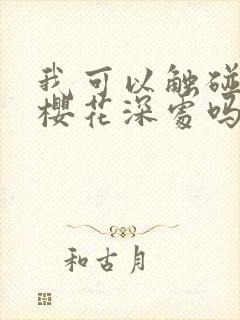 我可以触碰
樱花深处吗
和古月